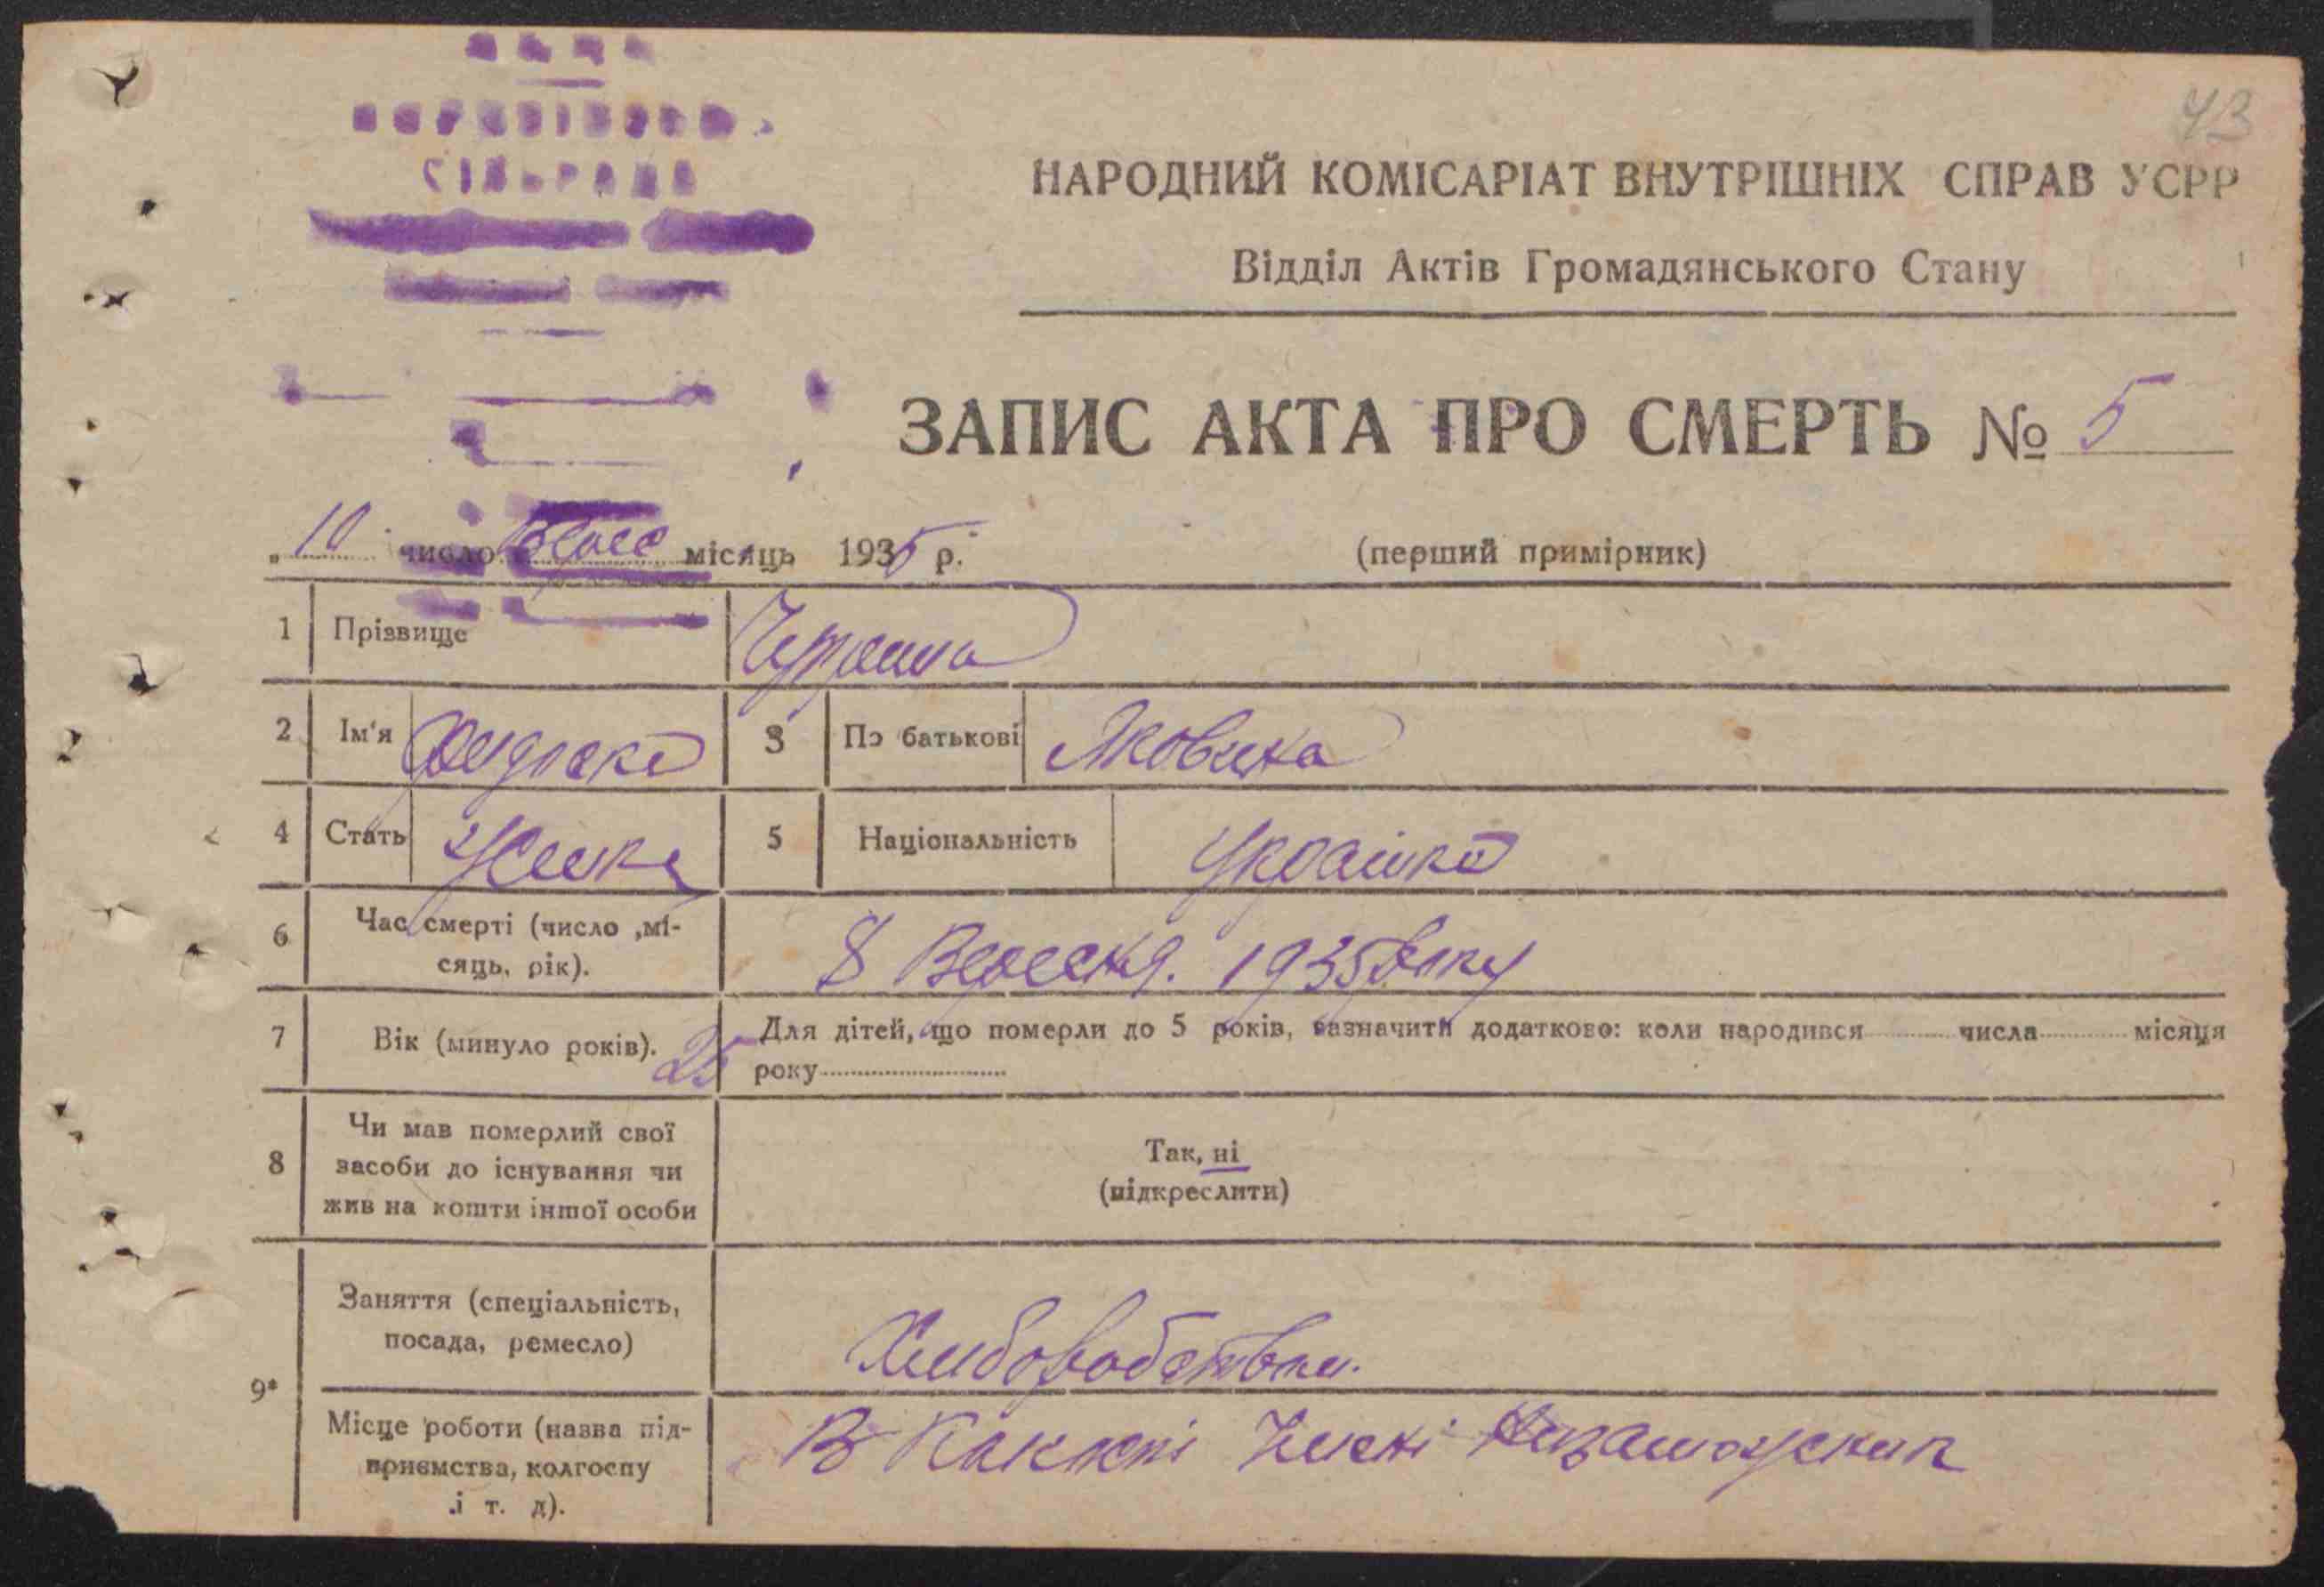 43
СІЛЬРАДА
НАРОДНИЙ КОМІСАРІАТ ВНУТРІШНІХ СПРАВ УСРР
Відділ Актів Громадянського Стану
ЗАПИС АКТА ПРО СМЕРТЬ № 5
„ 10 число місяць 1935 р.
(перший примірник)
1 Прізвище
2 Ім'я 3 По батькові Яковина
4 Стать Женка 5 Національність Українка
6 Час смерті (число ,мі-
сяць, рік).
8 Вересня. 1935 року
7 Вік (минуло років). 25 Для дітей, що померли до 5 років, зазначити додатково: коли народився числа місяця
року
8 Чи мав померлий свої
засоби до існування чи
жив на кошти іншої особи
Так, ні
(підкреслити)
9*
Заняття (спеціальність,
посада, ремесло)
Місце роботи (назва під-
приємства, колгоспу
і т. д).
В